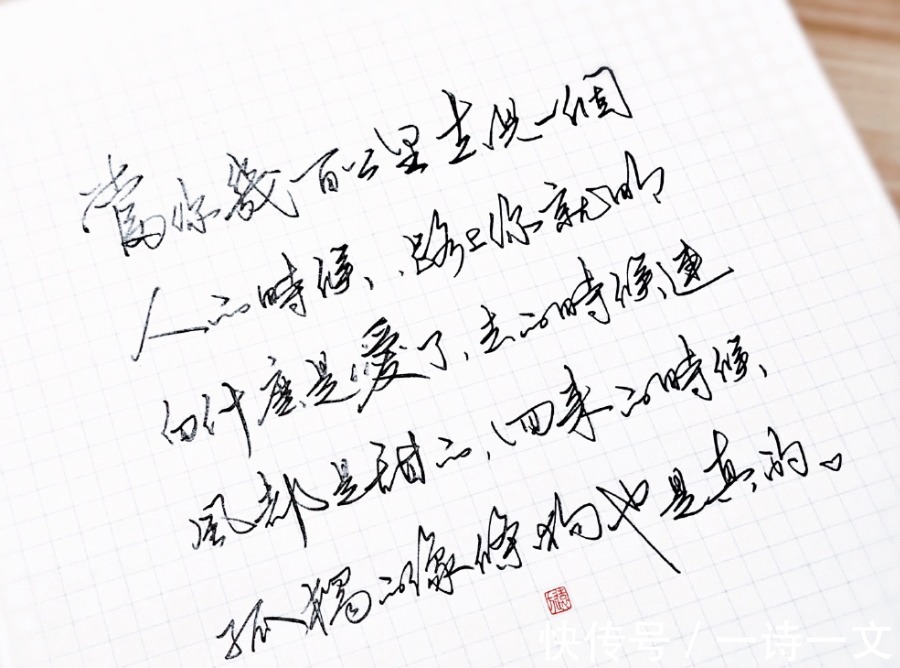 當你幾百公里去見一個
人的時候、路上你就明
白什麼是愛了、去的時候連
風都是甜的、回来的時候、
孤獨的像條狗也是真的。
快传号 / 一诗一文